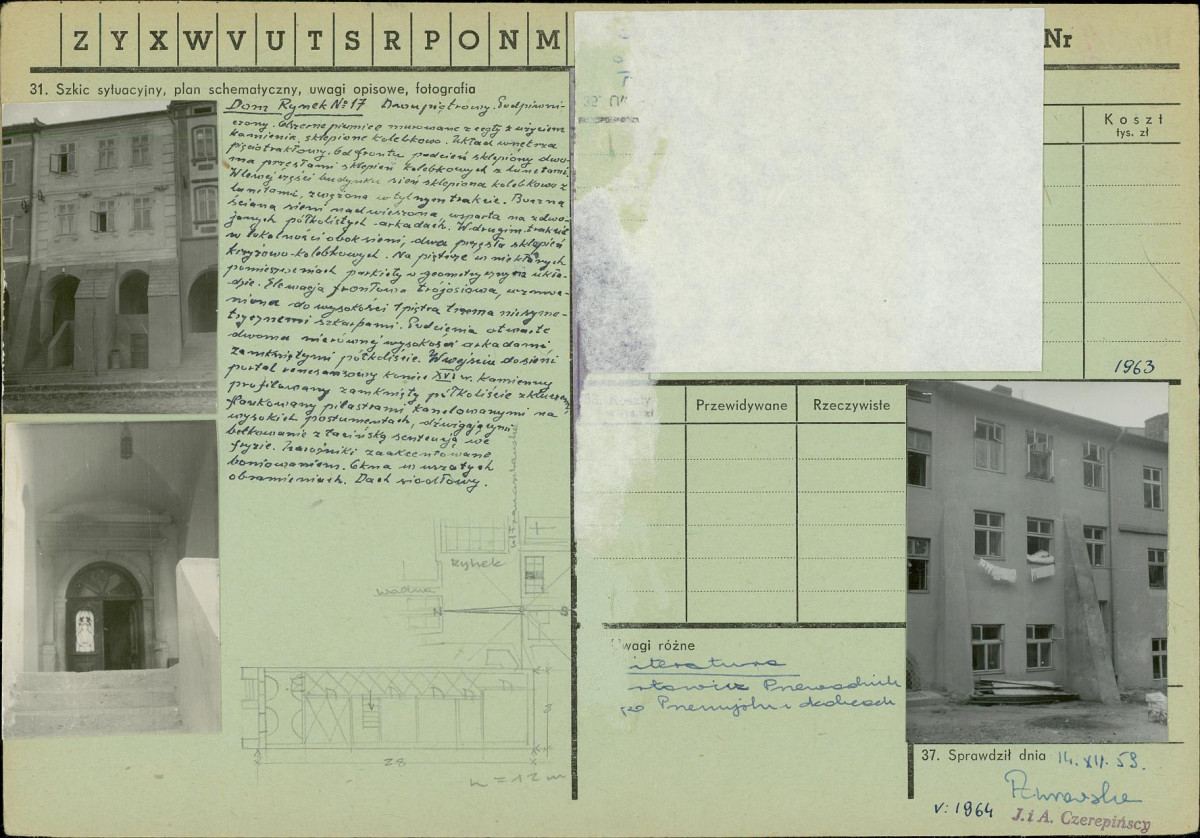 Z Y X W V U T S R P O N M
Nr
31. Szkic sytuacyjny, plan schematyczny, uwagi opisowe, fotografia
Dom Rynek Nº 17 Dwupiętrowy. Podpiwni-
czony. Obszerne piwnice murowane z cegły z użyciem
kamienia, sklepione kolebkowo. Układ wnętrza
pięciotraktowy. Od frontu podcień sklepiony dwo-
ma przęsłami sklepień kolebkowych z lunetami.
W lewej części budynku sień sklepiona kolebkowo z
lunetami, zwężona w tylnym trakcie. Boczna
ściana sieni nadwieszona, wsparta na zdwo-
jonych półkolistych arkadach. W drugim trakcie
w lokalności obok sieni, dwa przęsła sklepień
krzyżowo-kolebkowych. Na piętrze w niektórych
pomieszczeniach parkiety o geometrycznym ukła-
dzie. Elewacja frontowa trójosiowa, wzmoc-
niona do wysokości 1 piętra trzema niesyme-
trycznemi szkarpami. Podcienia otwarte
dwoma nierównej wysokości arkadami
zamkniętymi półkoliście. W wejściu do sieni
portal renesansowy koniec XVI w. kamienny
profilowany zamknięty półkoliście z kluczem,
flankowany pilastrami kanelowanymi na
wysokich postumentach, dźwigającymi
belkowanie z łacińską sentencją we
fryzie. Narożniki zaakcentowane
boniowaniem. Okna w uszatych
obramieniach. Dach siodłowy.
Koszt
tys. zł
1963
Przewidywane
Rzeczywiste
Rynek
wodna
N
S
28
h = 12 m
wagi różne
iteratura
Przewodnik
po Przemyślu i okolicach
37. Sprawdził dnia 14. XII. 59.
V: 1964
J. i A. Czerepińscy